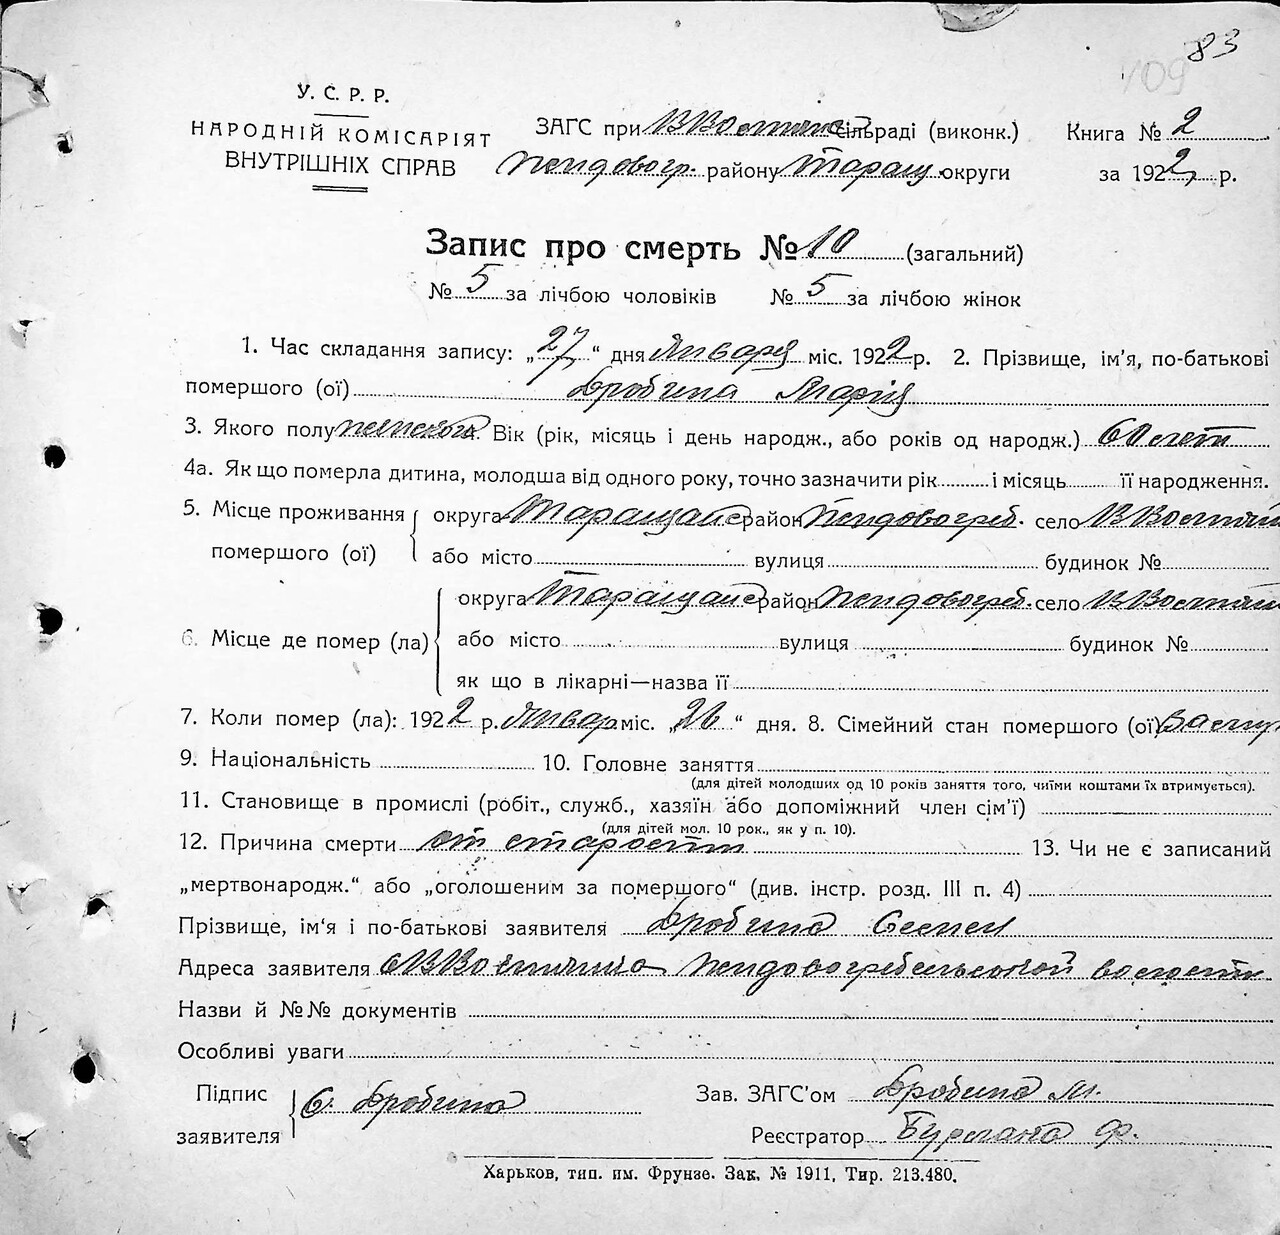 83
109
У. С. Р. Р.
НАРОДНІЙ КОМІСАРІЯТ
ВНУТРІШНІХ СПРАВ
ЗАГС при сільраді (виконк.)
району Таращ. округи
Книга № 2
за 1922 р.
Запис про смерть № 10 (загальний)
№ 5 за лічбою чоловіків № 5 за лічбою жінок
1. Час складання запису: „27“ дня Января міс. 1922 р. 2. Прізвище, ім'я, по-батькові
помершого (ої) Дробина Марія
3. Якого полу женского. Вік (рік, місяць і день народж., або років од народж.) 60 лет
4а. Як що померла дитина, молодша від одного року, точно зазначити рік і місяць її народження.
5. Місце проживання помершого (ої)
округа район село
або місто вулиця будинок №
6. Місце де помер (ла)
округа район село
або місто вулиця будинок №
як що в лікарні—назва її
7. Коли помер (ла): 1922 р. Январ міс. „26“ дня. 8. Сімейний стан помершого (ої)
9. Національність 10. Головне заняття
(для дітей молодших од 10 років заняття того, чиїми коштами їх втримується).
11. Становище в промислі (робіт., служб., хазяїн або допоміжний член сім'ї)
(для дітей мол. 10 рок., як у п. 10).
12. Причина смерти от старости 13. Чи не є записаний
„мертвонародж.“ або „оголошеним за помершого“ (див. інстр. розд. III п. 4)
Прізвище, ім'я і по-батькові заявителя Дробина Семен
Адреса заявителя волости
Назви й №№ документів
Особливі уваги
Підпис заявителя С. Дробина
Зав. ЗАГС'ом Дробина М.
Реєстратор Ф.
Харьков, тип. им. Фрунзе. Зак. № 1911, Тир. 213.480.